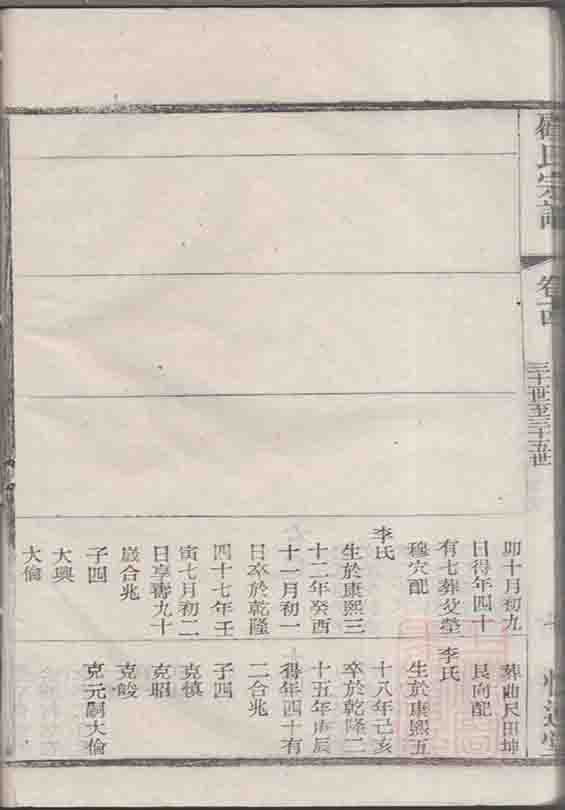 氏宗譜
卷
三十一世至三十五世
卯十月初九
日得年四十
有七葬父塋
穆穴配
李氏
生於康熙三
十二年癸酉
十一月初一
日卒於乾隆
四十七年壬
寅七月初二
日享壽九十
歲合兆
子四
大興
大倫
葬曲尺田坤
艮向配
李氏
生於康熙五
十八年己亥
卒於乾隆二
十五年庚辰
得年四十有
二合兆
子四
克慎
克昭
克峻
克元嗣大倫